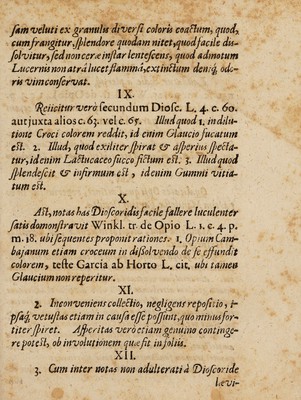 sam veluti ex granulis diversi coloris coactum, quod,
cum frangitur, splendore quodam nitet, quod facile dis-
solvitur, sed non ceræ instar lentescens, quod admotum
Lucernis non atrâ lucet flammâ, extinctum deníq; odo-
ris vim conservat.
IX.
Reiicitur verò secundum Diosc. L. 4. c. 60.
aut juxta alios c. 63. vel c. 65. Illud quod 1. indilu-
tione Croci colorem reddit, id enim Glaucio fucatum
est. 2. Illud, quod exiliter spirat & asperius specta-
tur, id enim Lactucaceo succo fictum est. 3. Illud quod
splendescit & infirmum est, id enim Gummi vitia-
tum est.
X.
Ast, notas has Dioscoridis facile fallere luculenter
satis domonstravit Winkl. tr. de Opio L. 1. c. 4. p.
m. 18. ubi sequentes proponit rationes. 1. Opium Cam-
bajanum etiam croceum in dissolvendo de se effundit
colorem, teste Garcia ab Horto L. cit. ubi tamen
Glaucium non reperitur.
XI.
2. Inconveniens collectio, negligens repositio, i-
psaq; vetustas etiam in causa esse possunt, quo minus for-
titer spiret. Asperitas verò etiam genuino continge-
re potest, ob involutionem quæ fit in foliis.
XII.
3. Cum inter notas non adulterati à Dioscoride
lævi-